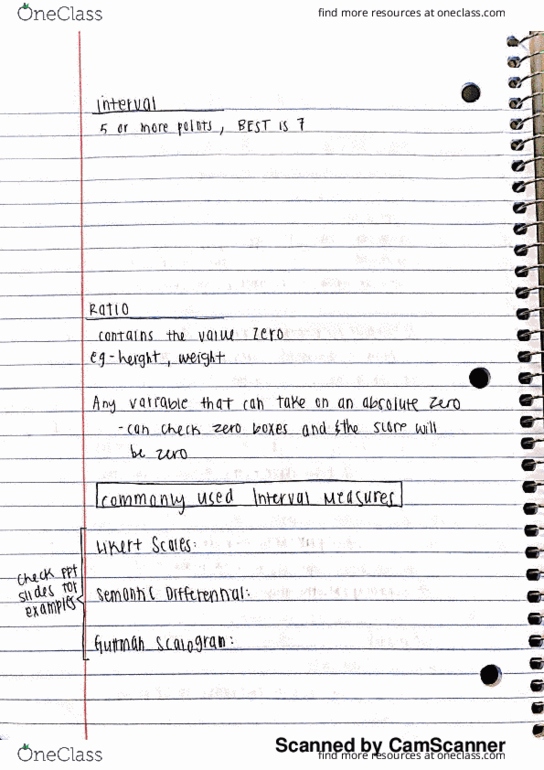 OneClass
find more resources at oneclass.com
interval
5 or more points, BEST is 7
Ratio
contains the value zero
eg - height, weight
Any variable that can take on an absolute zero
- can check zero boxes and the score will
be zero
commonly used Interval Measures
Likert Scales:
check ppt
slides for
examples
Semantic Differential:
Guttman Scalogram:
Scanned by CamScanner
OneClass
find more resources at oneclass.com